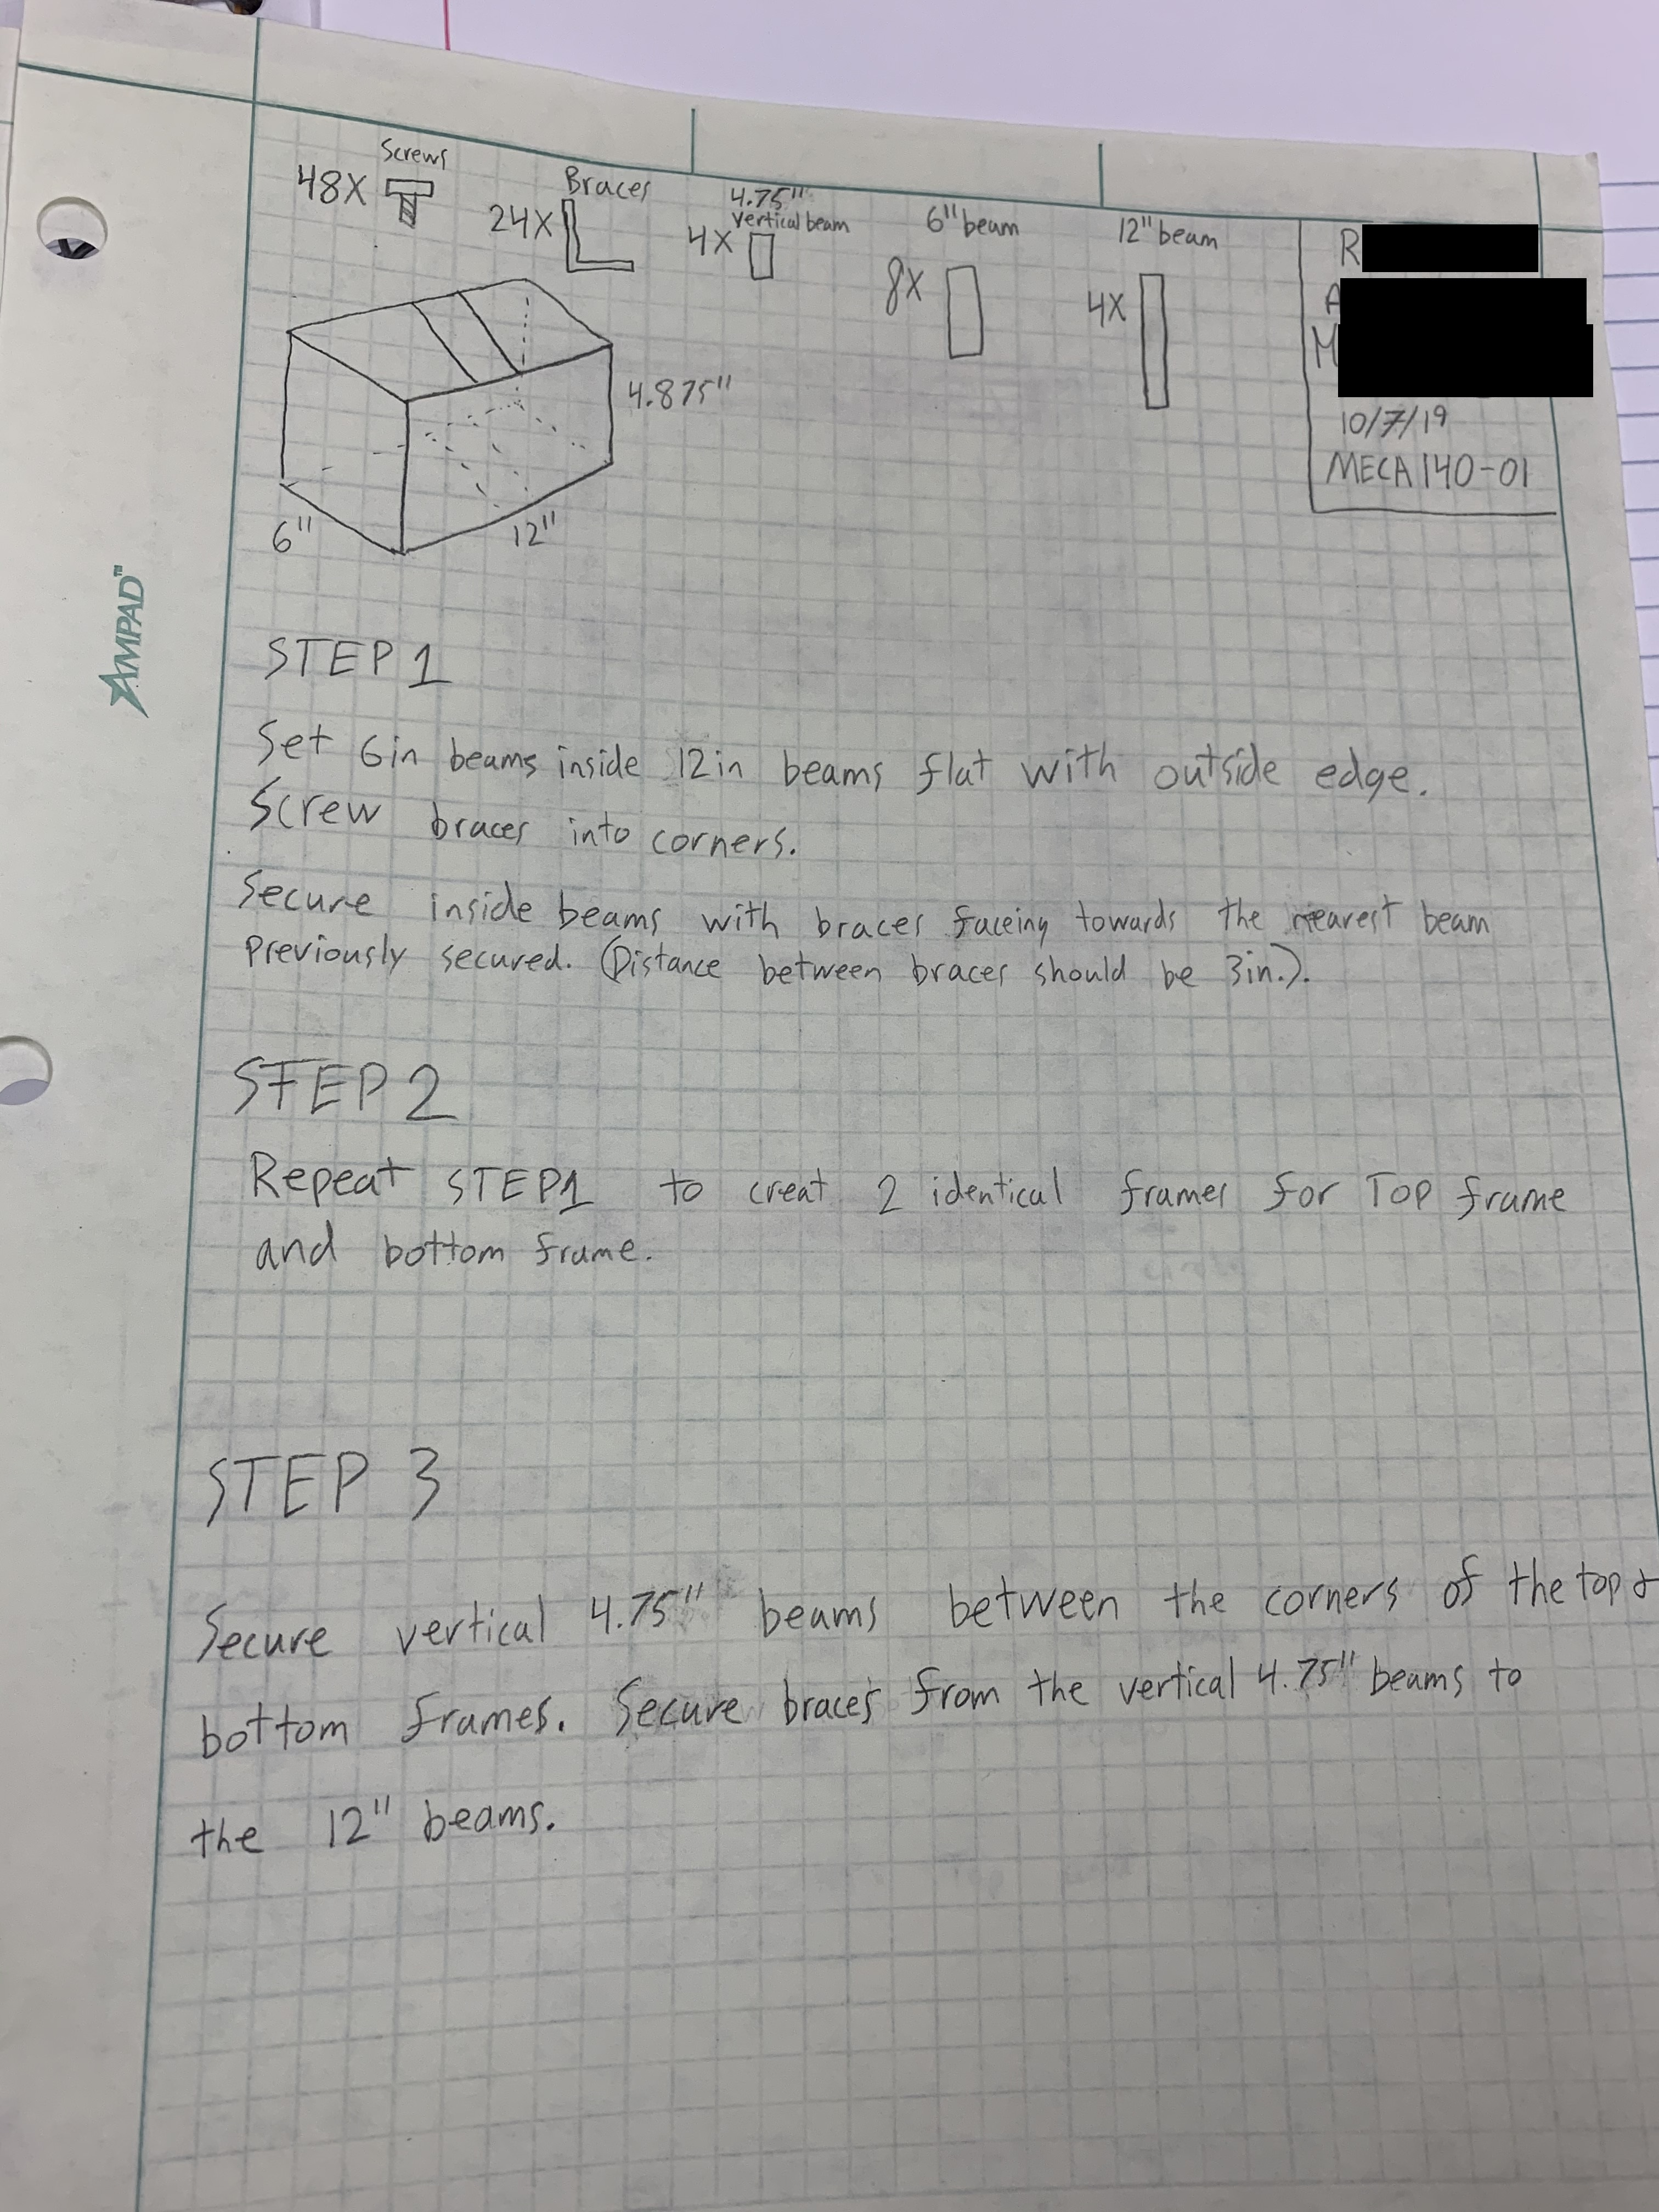 Screws
48X
Braces
24X
4.75"
vertical beam
4X
6" beam
8X
12" beam
4X
R
A
M
10/7/19
MECA 140-01
4.875"
6"
12"
AMPAD™
STEP 1
Set 6in beams inside 12in beams flat with outside edge.
Screw braces into corners.
Secure inside beams with braces faceing towards the nearest beam
previously secured. (Distance between braces should be 3in.).
STEP 2
Repeat STEP1 to creat 2 identical frames for Top frame
and bottom frame.
STEP 3
Secure vertical 4.75" beams between the corners of the top &
bottom frames. Secure braces from the vertical 4.75" beams to
the 12" beams.